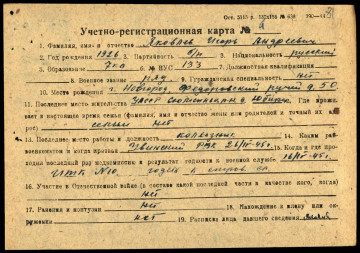 Учетно-регистрационная карта №
1. Фамилия, имя и отчество Яковлев Игорь Андреевич
2. Год рождения 1926 Партийность б/п 3. Национальность русский
5. Образование 7 кл 6. № ВУС 133 7. Должностная квалификация
8. Военное звание ряд 9. Гражданская специальность нет
10. Место рождения г. Новгород Федоровский ручей д. 50
11. Последнее место жительства Где прожи-
вает в настоящее время семья (фамилия, имя и отчество жены или родителей и точный их ад-
рес) семьи нет
13. Последнее место работы и должность колхозник 14. Каким рай-
военкоматом и когда призван РВК 26/IV-45 г. 15. Когда и где про-
ходил последний раз медкомиссию и результат годности к военной службе 16/IV-45 г.
16. Участие в Отечественной войне (в составе какой последней части и качестве кого, когда)
нет
17. Ранения и контузии нет 18. Нахождение в плену или ок-
ружении нет 19. Расписка лица, давшего сведения